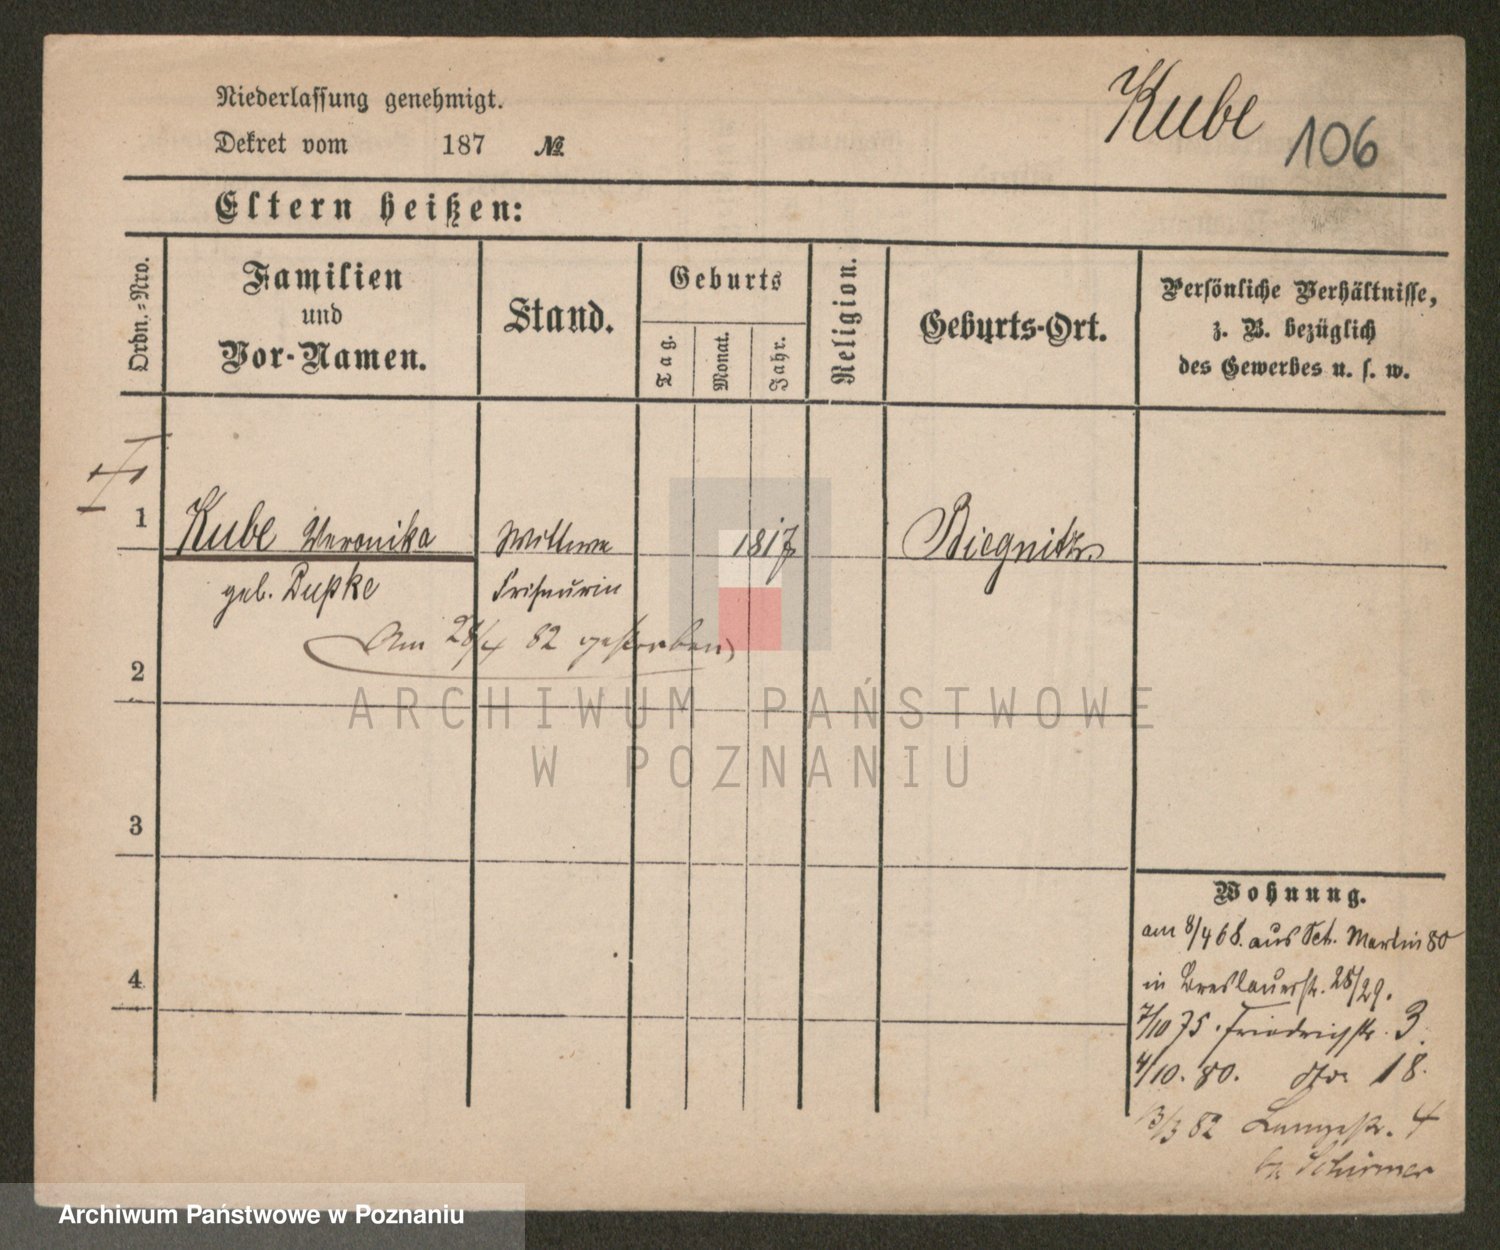 Niederlassung genehmigt.
Kube 106
Dekret vom 187 №
Eltern heißen:
Ordn.-Nro.
Familien
und
Vor-Namen.
Stand.
Geburts
Tag.
Monat.
Jahr.
Religion.
Geburts-Ort.
Persönliche Verhältnisse,
z. B. bezüglich
des Gewerbes u. s. w.
1 Kube Veronika Wittwe 1817 Biegnitz
geb. Dupke Friseurin
Am 28/4 82 gestorben
2
3
4
Wohnung.
am 8/4 68. aus Sct. Martin 80
in Breslauerstr. 28/29.
7/10 75. Friedrichstr. 3.
4/10. 80. dto 18.
3/3 82 Langestr. 4
bei Schirmer
ARCHIWUM PAŃSTWOWE
W POZNANIU
Archiwum Państwowe w Poznaniu